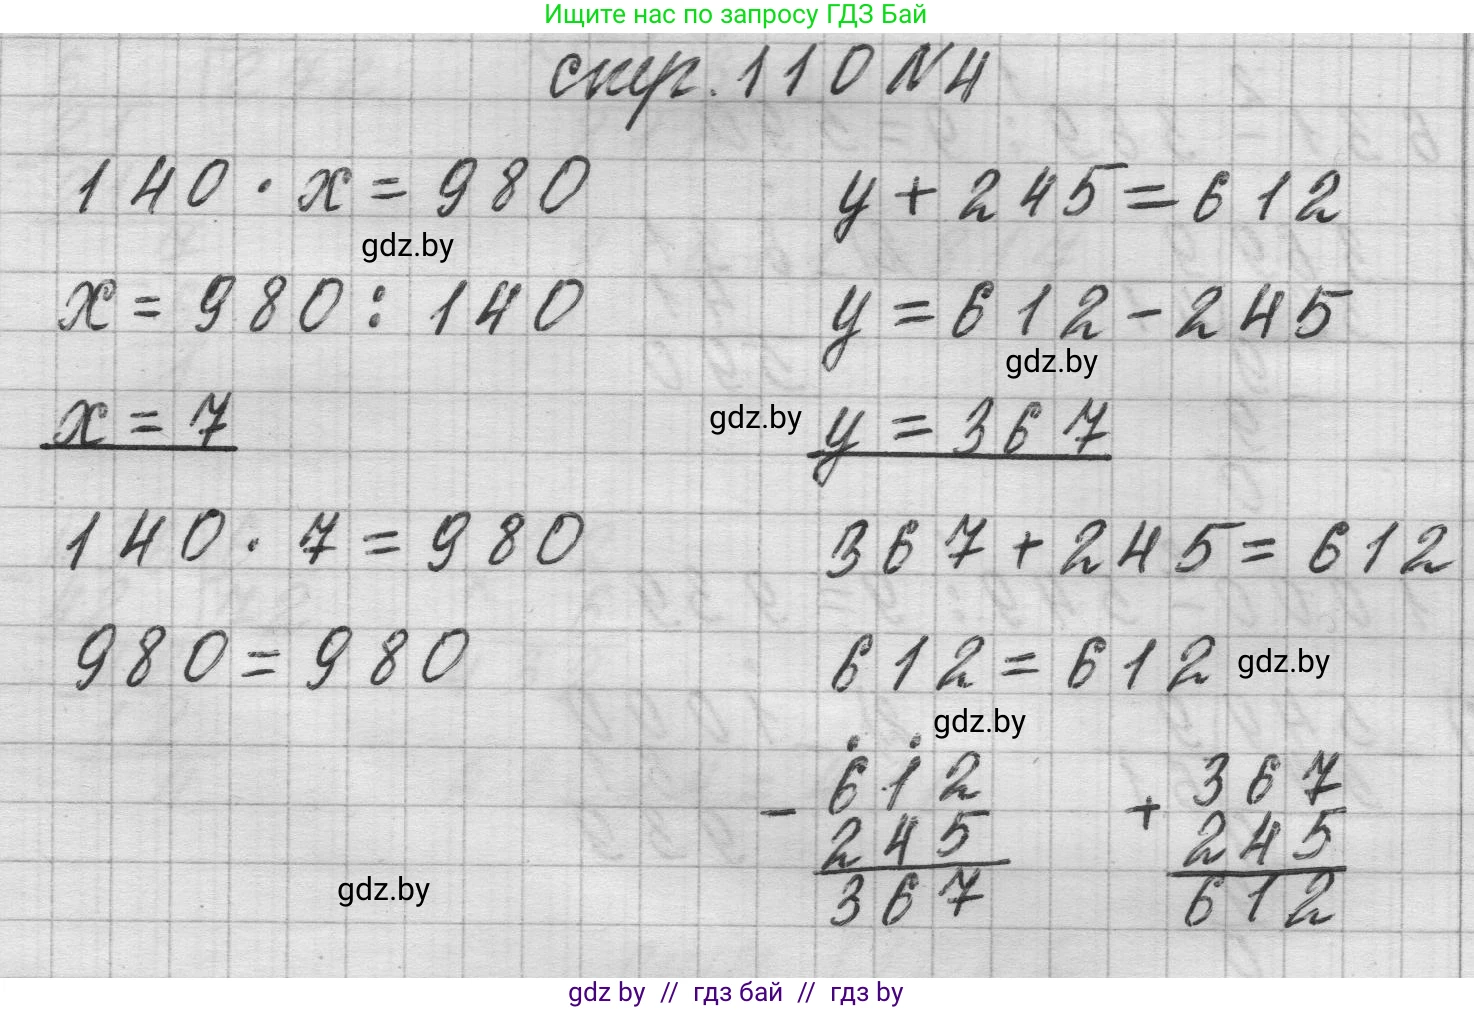 Ищите нас по запросу ГДЗ Бай
стр. 110 N 4
140 · x = 980
gdz.by
x = 980 : 140
x = 7
140 · 7 = 980
980 = 980
gdz.by
y + 245 = 612
y = 612 - 245
gdz.by
gdz.by
y = 367
367 + 245 = 612
612 = 612
gdz.by
gdz.by
- 612
245
367
+ 367
245
612
gdz by // гдз бай // гдз by